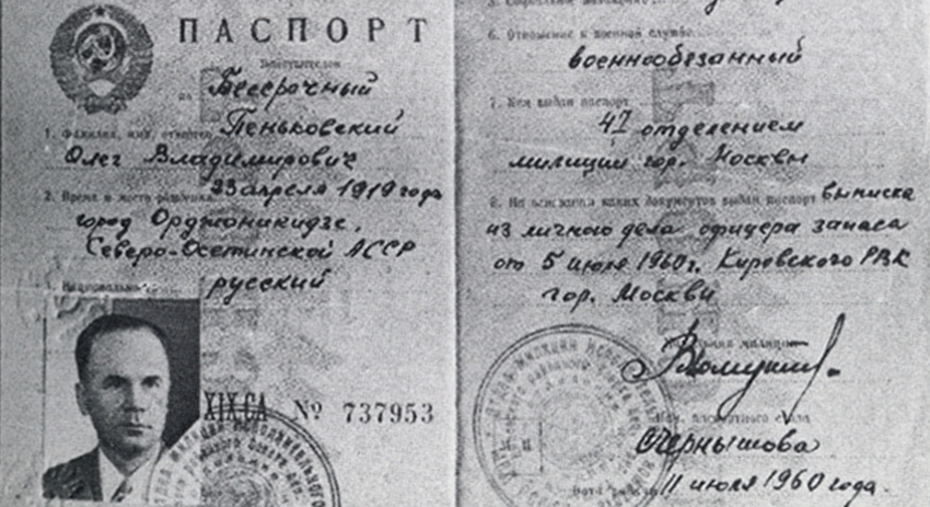 ПАСПОРТ
Бессрочный
1. Фамилия, имя, отчество Пеньковский
Олег Владимирович
2. Время и место рождения 23 апреля 1919 года
город Орджоникидзе,
Северо-Осетинской АССР
русский
XIX СА № 737953
6. Отношение к военной службе
военнообязанный
7. Кем выдан паспорт
41 отделением
милиции гор. Москвы
8. На основании каких документов выдан паспорт выписка
из личного дела офицера запаса
от 5 июля 1960г. Кировского РВК
гор. Москвы
милиции
Нач. паспортного стола
Чернышова
11 июля 1960 года.